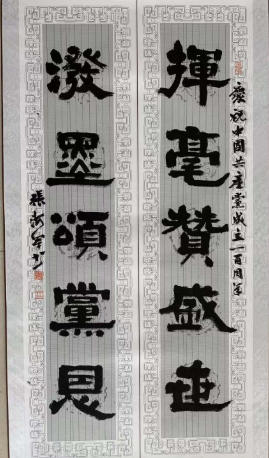 慶祝中國共產黨成立一百周年
揮毫贊盛世
潑墨頌黨恩